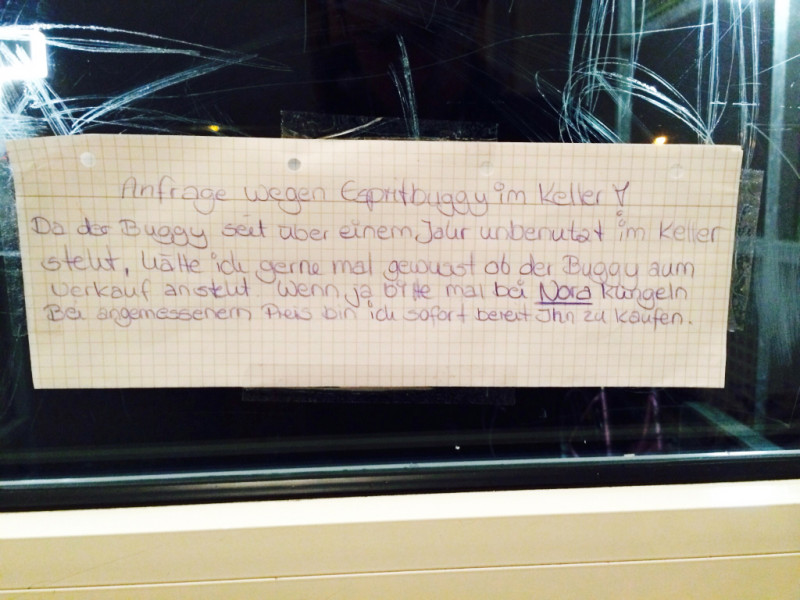 Anfrage wegen Espritbuggy im Keller !
Da der Buggy seit über einem Jahr unbenutzt im Keller
steht, hätte ich gerne mal gewusst ob der Buggy zum
Verkauf ansteht. Wenn ja bitte mal bei Nora klingeln
Bei angemessenem Preis bin ich sofort bereit Ihn zu kaufen.